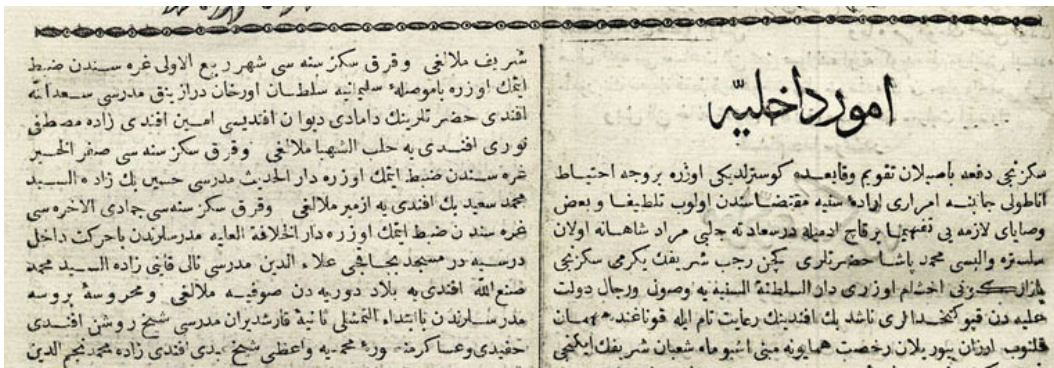 امور داخلیّه
سکزنجی دفعه باصیلان تقویم وقایعده کوسترلدیکی اوزره بروجه احتیاط
اناطولی جانبنه امراری ارادهٔ سنیه مقتضاسندن اولوب تلطیفا و بعض
وصایای لازمه یی تفهیما برقاچ ادمیله درسعادته جلبی مراد شاهانه اولان
سلستره والیسی محمد پاشا حضرتلری کچن رجب شریفك یکرمی سکزنجی
بازار کونی اخشام اوزری دار السلطنة السنیه یه وصولی ورجال دولت
علیه دن قپوکتخدالری ناشد بك افندینك رعایت تام ایله قوناغنده مهمان
قلنوب ارزان بیوریلان رخصت همایونه مبنی اشبو ماه شعبان شریفك ایکنجی
شریف ملالغی وقرق سکز سنه سی شهر ربیع الاولی غره سندن ضبط
ایتمك اوزره باموصلهٔ سلیمانیه سلطان اورخان درازنیق مدرسی سعدالله
افندی حضرتلرینك دامادی دیوان افندیسی امین افندی زاده مصطفی
نوری افندی یه حلب الشهبا ملالغی وقرق سکز سنه سی صفر الخیر
غره سندن ضبط ایتمك اوزره دار الحدیث مدرسی حسین بك زاده السید
محمد سعید بك افندی یه ازمیر ملالغی وقرق سکز سنه سی جمادی الاخره سی
غره سندن ضبط ایتمك اوزره دار الخلافة العلیه مدرسلرندن باحرکت داخل
درسیه در مسجد بجاهجی علاء الدین مدرسی تالی قاینی زاده السید محمد
صنع الله افندی یه بلاد دوریه دن صوفیه ملالغی ومحروسهٔ بروسه
مدرسلرندن باابتداء التمشلی ثانیهٔ قارشدیران مدرسی شیخ روشن افندی
حفیدی وعساکر منصورهٔ محمدیه واعظی شیخ یدی افندی زاده محمد نجم الدین